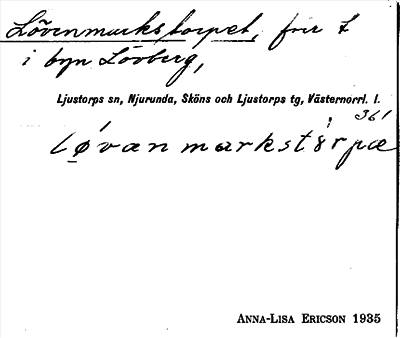 Lövenmarkstorpet, frir t
i byn Lövberg,
Ljustorps sn, Njurunda, Sköns och Ljustorps tg, Västernorrl. l.
361
Anna-Lisa Ericson 1935